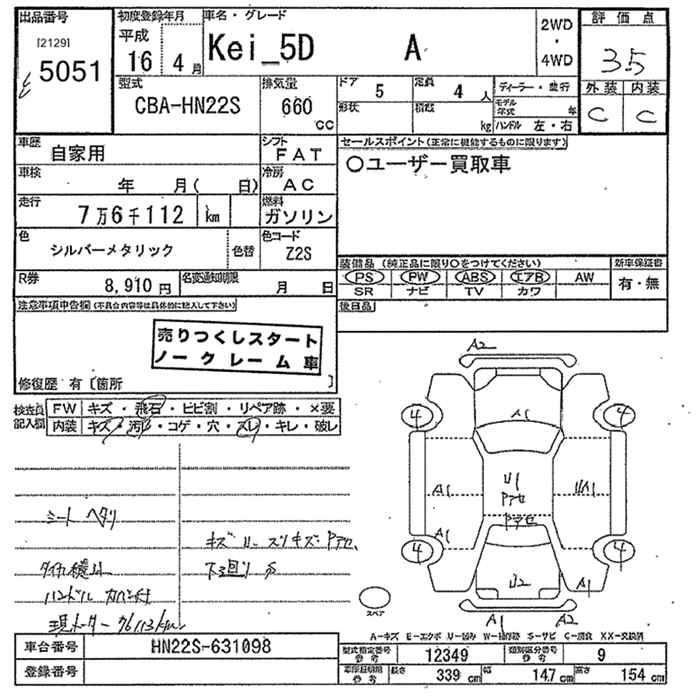 出品番号 初度登録年月 車名・グレード 2WD・4WD 評価点
[2129]
5051
平成 16 4月
Kei_5D A
3.5
型式 排気量 ドア 5 定員 4人 ディーラー・並行 外装 内装
CBA-HN22S 660 CC
形状 積載 kg モデル年式 年
ハンドル 左・右
C C
車歴 自家用 シフト FAT
セールスポイント(正常に機能するものに限ります)
○ユーザー買取車
車検 年 月( 日) 冷房 AC
走行 7万6千112 km 燃料 ガソリン
色 シルバーメタリック 色替 色コード Z2S
R券 8,910円 名変通知期限 月 日
装備品(純正品に限り○をつけてください) 新車保証書
PS PW ABS エアB AW 有・無
SR ナビ TV カワ
後日品
注意事項申告欄(不具合内容等は具体的に記入して下さい)
売りつくしスタート
ノークレーム車
修復歴 有〔箇所 〕
検査員記入欄
FW キズ・飛石・ヒビ割・リペア跡・×要
内装 キズ・汚れ・コゲ・穴・スレ・キレ・破レ
シート ヘタリ
キズ U スリキズ Pアセ
下廻り サ
ハンドル カバー付
現メーター 76113km
A2
A1
4 4
A1 U1 Pアセ UA1
Pアセ
A1
4 4
U2 A1
スペア
A1 A2
A-キズ E-エクボ U-凹み W-補修跡 S-サビ C-腐食 XX-交換済
車台番号 HN22S-631098
登録番号
型式指定番号 参考 12349 類別区分番号 参考 9
車庫証明用 参考 長さ 339 cm 幅 147 cm 高さ 154 cm